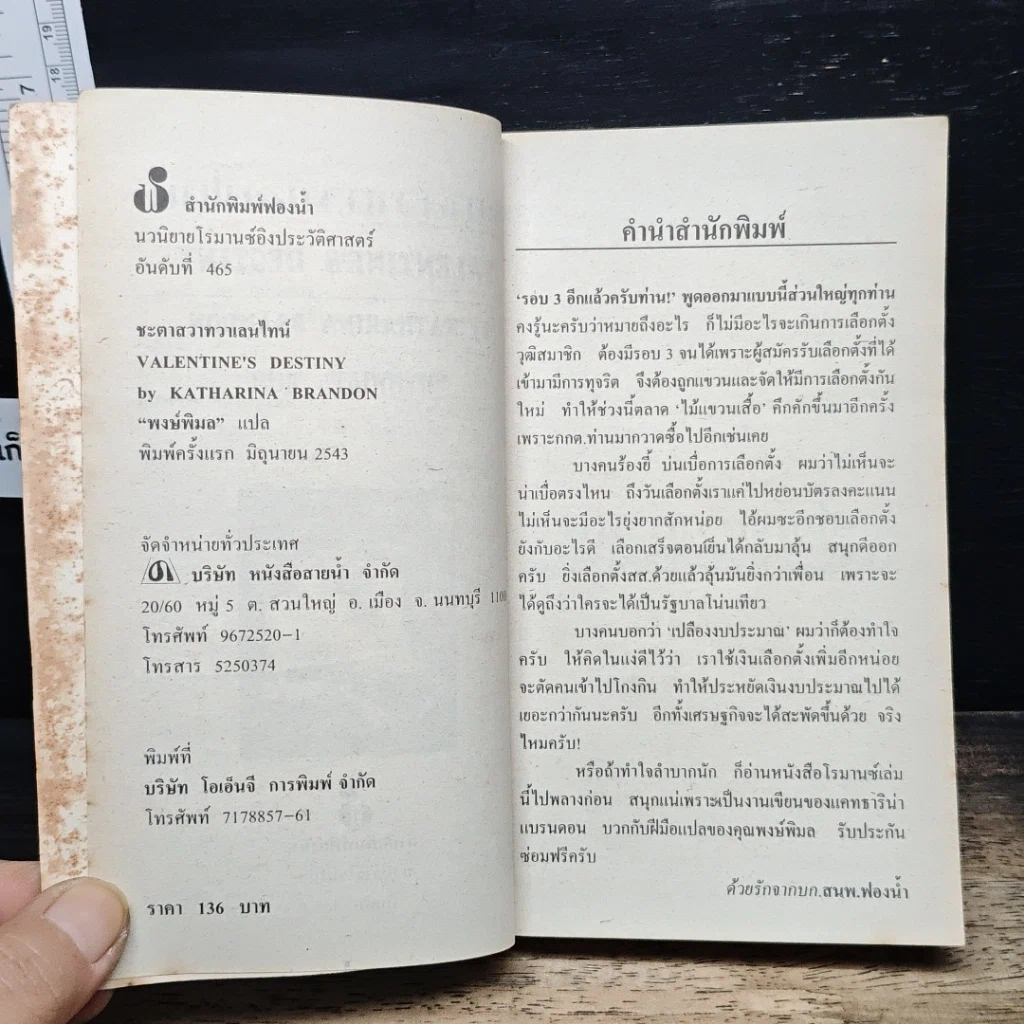 19
18
7
สำนักพิมพ์ฟองน้ำ
นวนิยายโรมานซ์อิงประวัติศาสตร์
อันดับที่ 465
ชะตาสวาทวาเลนไทน์
VALENTINE'S DESTINY
by KATHARINA BRANDON
“พงษ์พิมล” แปล
พิมพ์ครั้งแรก มิถุนายน 2543
จัดจำหน่ายทั่วประเทศ
บริษัท หนังสือสายน้ำ จำกัด
20/60 หมู่ 5 ต. สวนใหญ่ อ. เมือง จ. นนทบุรี
โทรศัพท์ 9672520-1
โทรสาร 5250374
พิมพ์ที่
บริษัท โอเอ็นจี การพิมพ์ จำกัด
โทรศัพท์ 7178857-61
ราคา 136 บาท
คำนำสำนักพิมพ์
‘รอบ 3 อีกแล้วครับท่าน!’ พูดออกมาแบบนี้ส่วนใหญ่ทุกท่าน
คงรู้นะครับว่าหมายถึงอะไร ก็ไม่มีอะไรจะเกินการเลือกตั้ง
วุฒิสมาชิก ต้องมีรอบ 3 จนได้เพราะผู้สมัครรับเลือกตั้งที่ได้
เข้ามามีการทุจริต จึงต้องถูกแขวนและจัดให้มีการเลือกตั้งกัน
ใหม่ ทำให้ช่วงนี้ตลาด ‘ไม้แขวนเสื้อ’ คึกคักขึ้นมาอีกครั้ง
เพราะกกต.ท่านมากวาดซื้อไปอีกเช่นเคย
บางคนร้องยี้ บ่นเบื่อการเลือกตั้ง ผมว่าไม่เห็นจะ
น่าเบื่อตรงไหน ถึงวันเลือกตั้งเราแค่ไปหย่อนบัตรลงคะแนน
ไม่เห็นจะมีอะไรยุ่งยากสักหน่อย ไอ้ผมซะอีกชอบเลือกตั้ง
ยังกับอะไรดี เลือกเสร็จตอนเย็นได้กลับมาลุ้น สนุกดีออก
ครับ ยิ่งเลือกตั้งสส.ด้วยแล้วลุ้นมันยิ่งกว่าเพื่อน เพราะจะ
ได้ดูถึงว่าใครจะได้เป็นรัฐบาลโน่นเทียว
บางคนบอกว่า ‘เปลืองงบประมาณ’ ผมว่าก็ต้องทำใจ
ครับ ให้คิดในแง่ดีไว้ว่า เราใช้เงินเลือกตั้งเพิ่มอีกหน่อย
จะตัดคนเข้าไปโกงกิน ทำให้ประหยัดเงินงบประมาณไปได้
เยอะกว่ากันนะครับ อีกทั้งเศรษฐกิจจะได้สะพัดขึ้นด้วย จริง
ไหมครับ!
หรือถ้าทำใจลำบากนัก ก็อ่านหนังสือโรมานซ์เล่ม
นี้ไปพลางก่อน สนุกแน่เพราะเป็นงานเขียนของแคทธาริน่า
แบรนดอน บวกกับฝีมือแปลของคุณพงษ์พิมล รับประกัน
ซ่อมฟรีครับ
ด้วยรักจากบก.สนพ.ฟองน้ำ